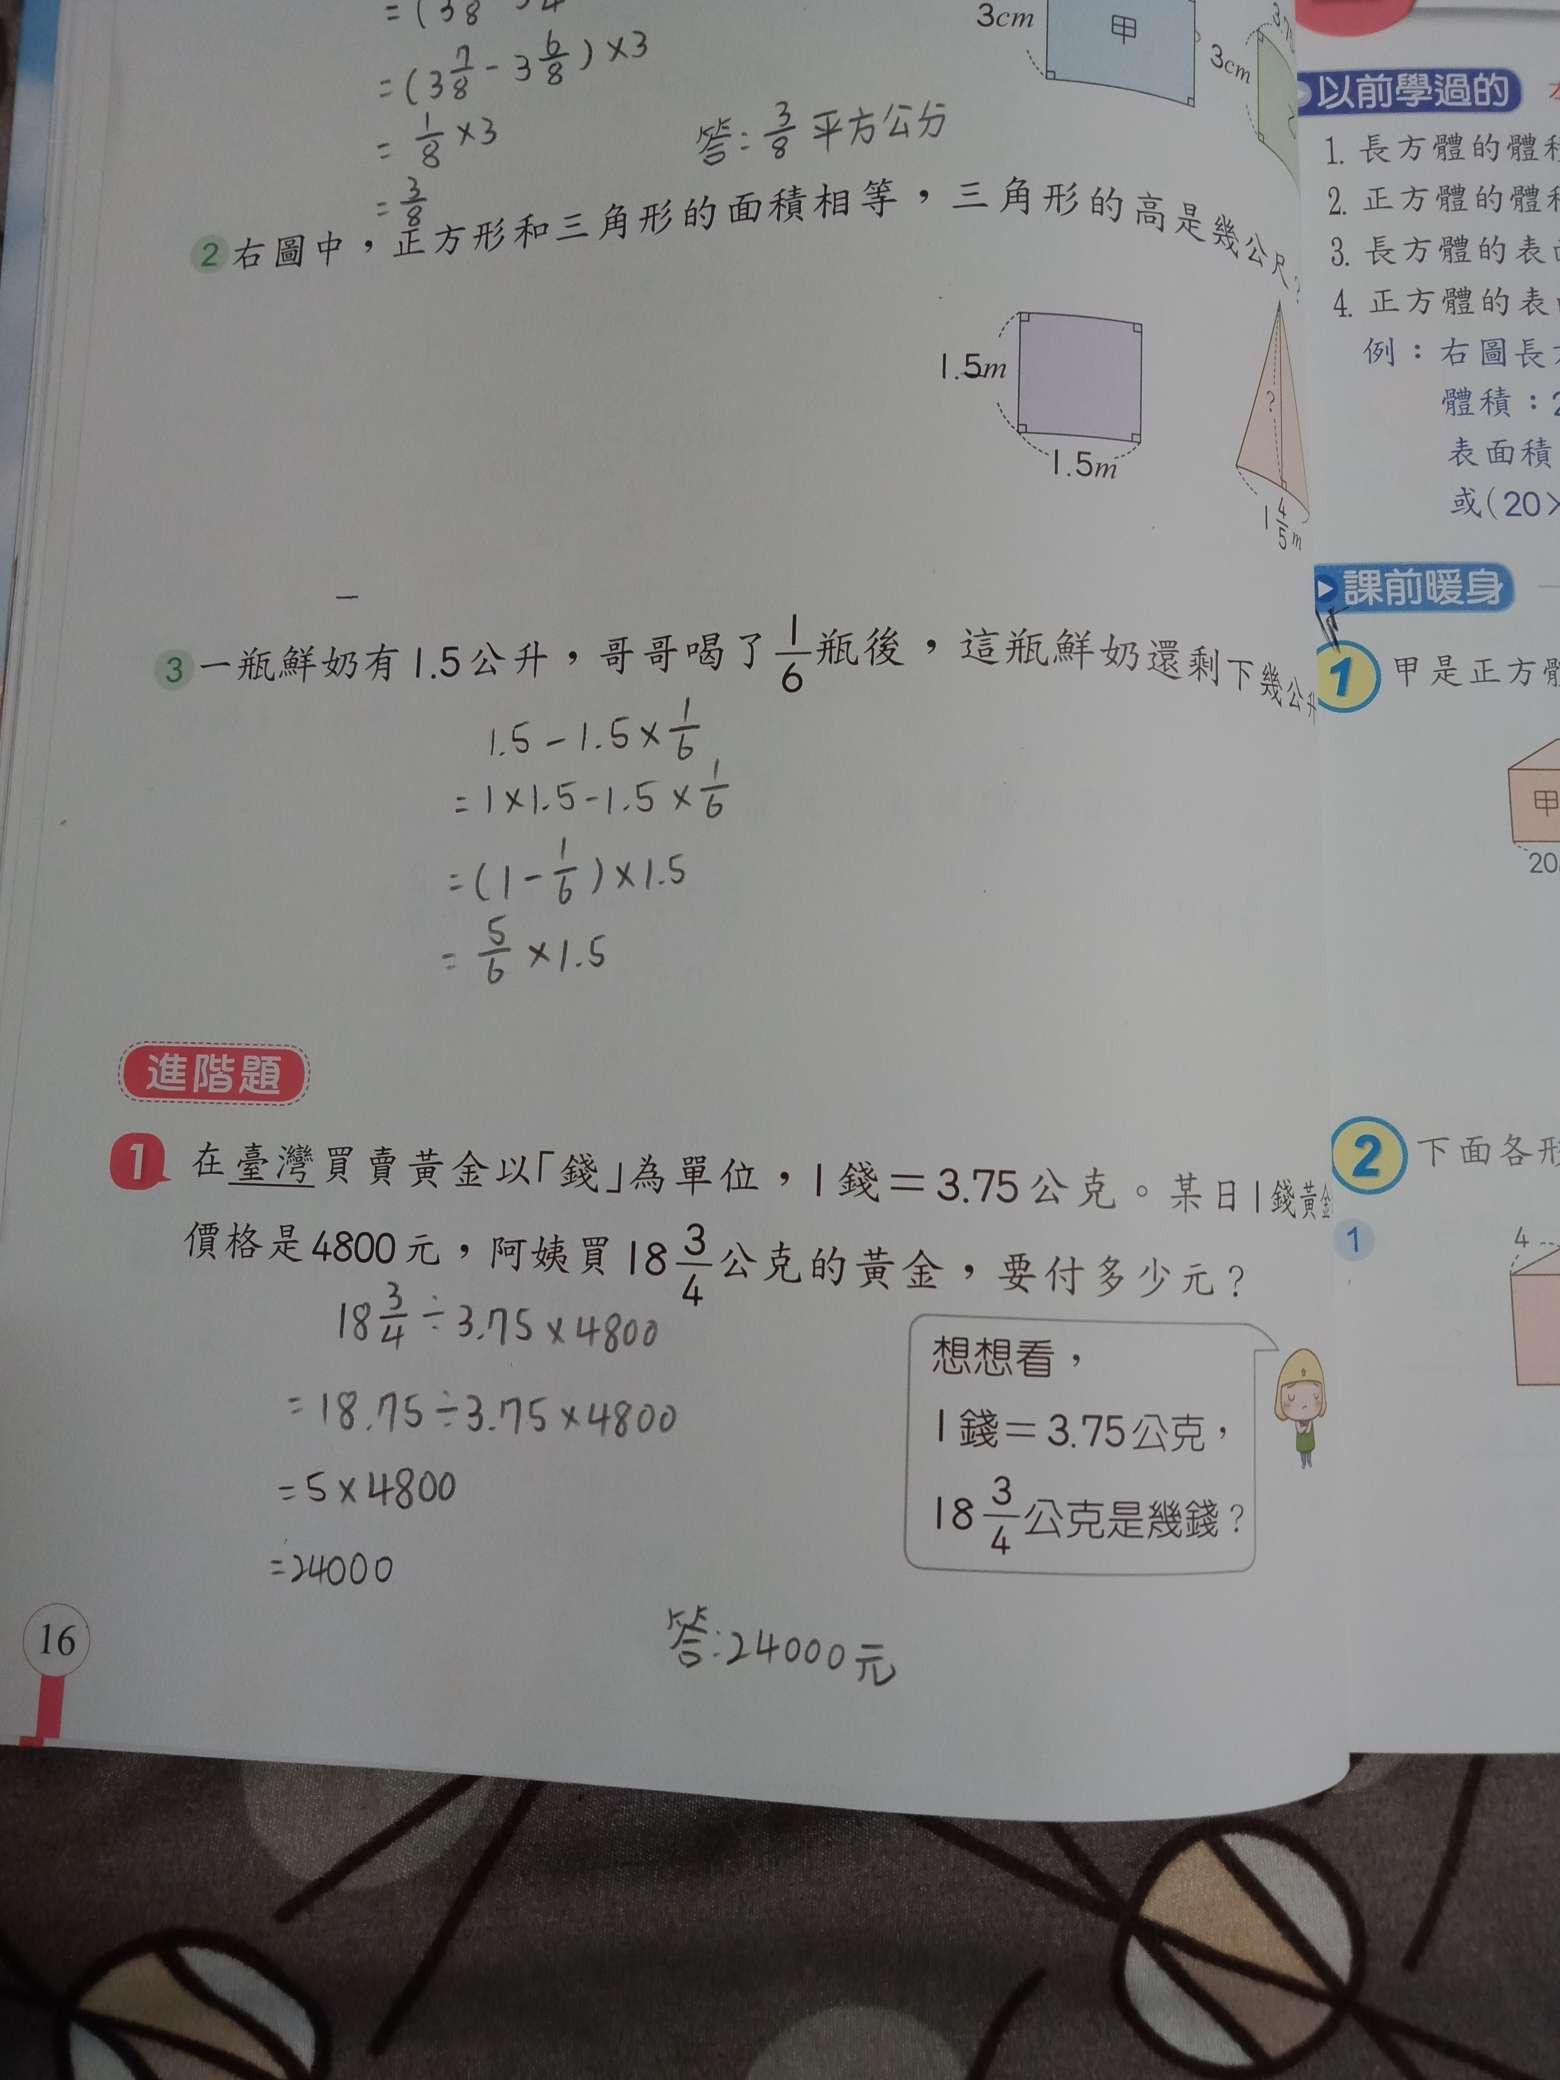 = (3 7/8 - 3 6/8) × 3
= 1/8 × 3
= 3/8
答: 3/8 平方公分
3cm
甲
3cm
2 右圖中，正方形和三角形的面積相等，三角形的高是幾公尺？
1.5m
1.5m
?
1 4/5 m
3 一瓶鮮奶有1.5公升，哥哥喝了 1/6 瓶後，這瓶鮮奶還剩下幾公升
1.5 - 1.5 × 1/6
= 1 × 1.5 - 1.5 × 1/6
= (1 - 1/6) × 1.5
= 5/6 × 1.5
進階題
1 在臺灣買賣黃金以「錢」為單位，1錢＝3.75公克。某日1錢黃金
價格是4800元，阿姨買 18 3/4 公克的黃金，要付多少元？
18 3/4 ÷ 3.75 × 4800
= 18.75 ÷ 3.75 × 4800
= 5 × 4800
= 24000
答: 24000元
想想看，
1錢＝3.75公克，
18 3/4 公克是幾錢？
16
以前學過的
1. 長方體的體積
2. 正方體的體積
3. 長方體的表面
4. 正方體的表面
例：右圖長方
體積：2
表面積
或(20×
課前暖身
1 甲是正方體
甲
20
2 下面各形
1
4